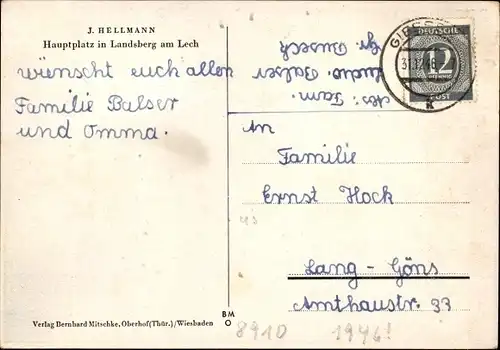 J. HELLMANN
Hauptplatz in Landsberg am Lech
wünscht euch allen
Familie Balser
und Omma.
Abs: Fam.
Balser
DEUTSCHE
12
PFENNIG
POST
31.12.46
k
An
Familie
Ernst Hock
Lang-Göns
Amthausstr. 33
Verlag Bernhard Mitschke, Oberhof(Thür.)/Wiesbaden
BM
O
8910 1946!